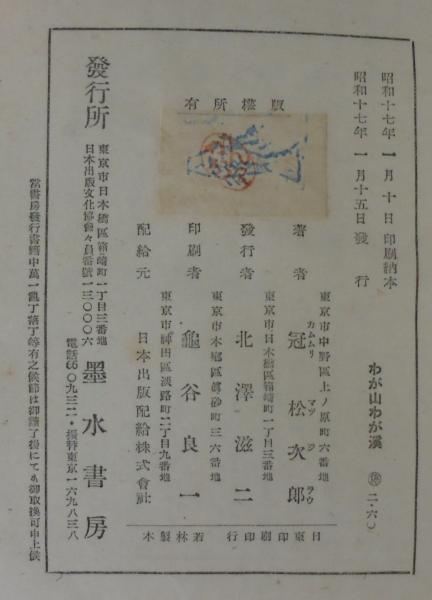 昭和十七年一月十日印刷納本
昭和十七年一月十五日發行
わが山わが溪
二・六〇
版權所有
東京市中野區上ノ原町六番地
著者 冠松次郎
カムムリ マツ ジ ラウ
東京市日本橋區箱崎町一丁目三番地
發行者 北澤滋二
東京市本鄕區眞砂町三六番地
印刷者 龜谷良一
東京市神田區淡路町二丁目九番地
配給元 日本出版配給株式會社
日東印刷印行
若林製本
東京市日本橋區箱崎町一丁目三番地
日本出版文化協會々員番號一三〇〇〇六
發行所 墨水書房
電話 〇九三二・振替東京一六九八三八
當書房發行書籍中萬一亂丁落丁等有之候節は御讀了後にても御取換可申上候